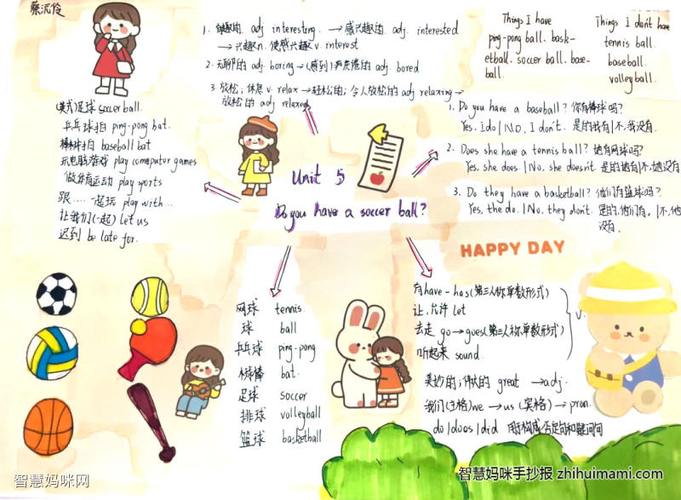 1. 有趣的 adj interesting → 感兴趣的 adj. interested
→ 兴趣 n. 使感兴趣 v. interest
2. 无聊的 adj boring → (感到) adj. bored
3. 放松; 休息 v. relax → 轻松的; 令人放松的 adj relaxing →
放松的 adj relaxed
Things I have
ping-pong ball. bask-
etball. soccer ball. base-
ball.
Things I don't have
tennis ball.
baseball.
volleyball.
美式足球 soccer ball.
乒乓球拍 ping-pong bat.
棒球拍 baseball bat
玩电脑游戏 play computer games
做体育运动 play sports
跟……一起玩 play with...
让我们(一起) let us
迟到 be late for.
Unit 5
Do you have a soccer ball?
1. Do you have a baseball? 你有棒球吗?
Yes, I do / No, I don't. 是的我有 / 不,我没有.
2. Does she have a tennis ball? 她有网球吗?
Yes, she does / No, she doesn't. 是的她有/不,她没有
3. Do they have a basketball? 他们有篮球吗?
Yes, the do. / No, they don't. 是的,他们有, / 不,他们
没有.
HAPPY DAY
网球 tennis.
球 ball
乒乓球 ping-pong
球棒 bat.
足球 soccer
排球 volleyball
篮球 basketball
有 have - has (第三人称单数形式)
让,允许 let
去,走 go → goes (第三人称单数形式)
听起来 sound.
美妙的; 伟大的 great → adj.
我们(主格) we → us (宾格) → pron.
do / does / did 用于构成否定句和疑问句
智慧妈咪网
智慧妈咪手抄报 zhihuimami.com